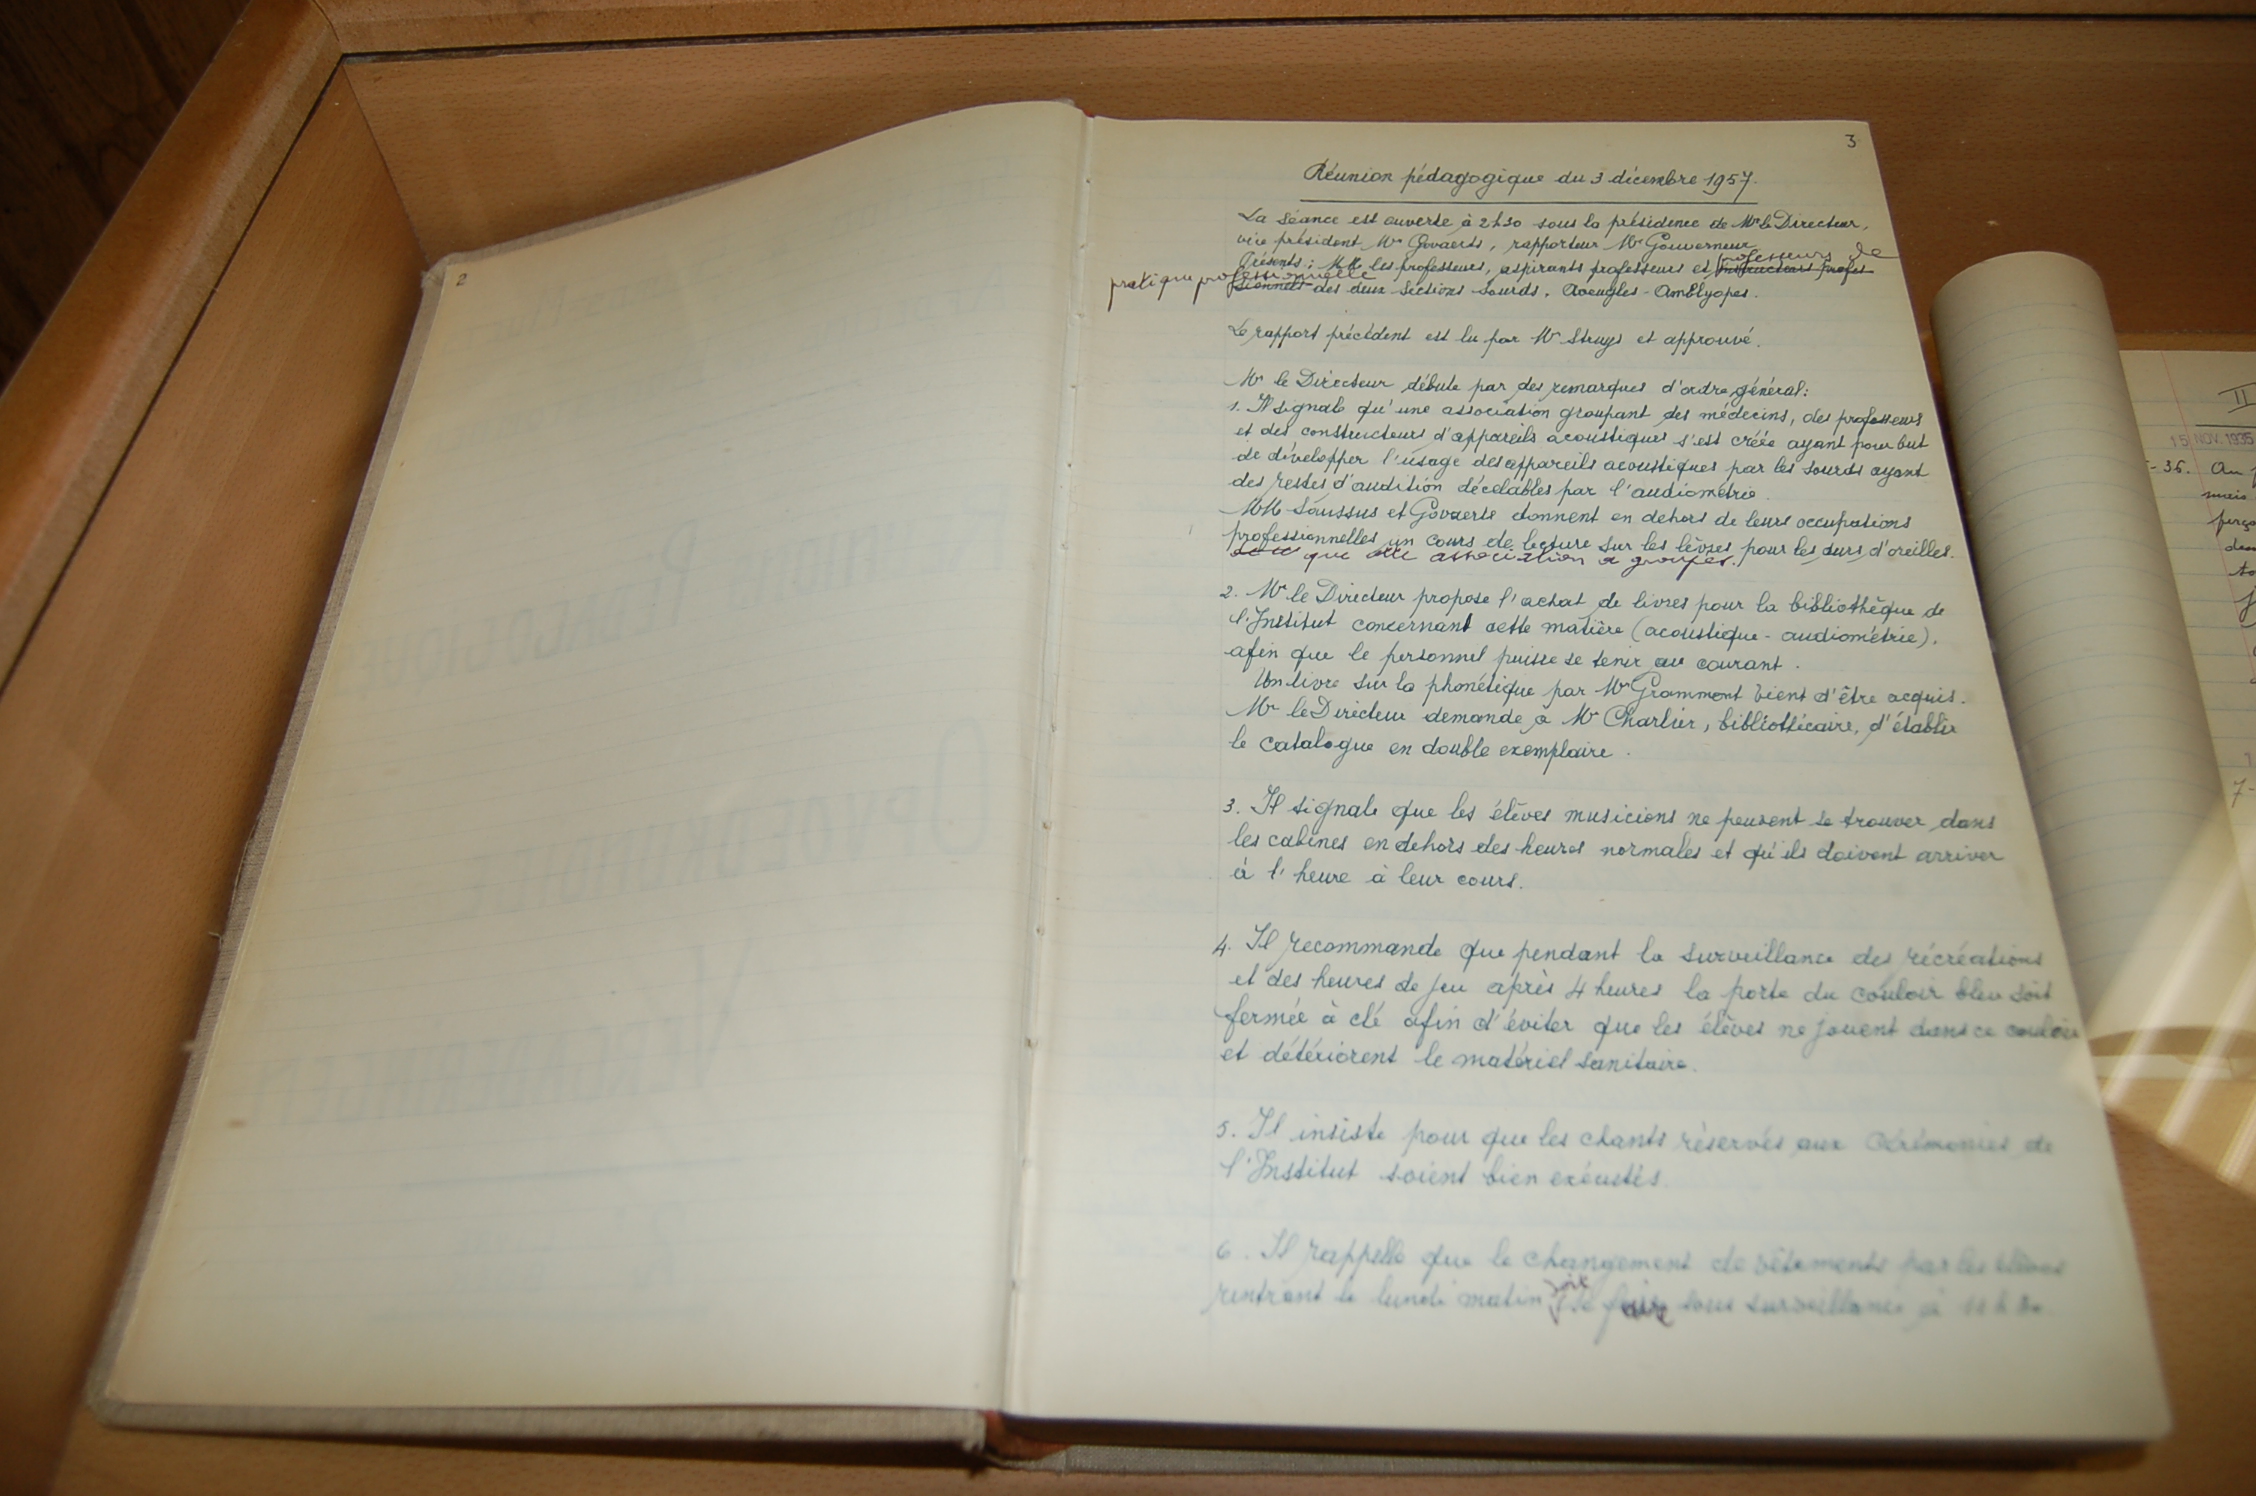 2
3
Réunion pédagogique du 3 décembre 1957.
La séance est ouverte à 2h30 sous la présidence de Mr le Directeur,
vice président Mr Govaerts, rapporteur Mr Gouverneur
Présents : MM les professeurs, aspirants professeurs et instructeurs profes professeurs de
pratique professionnelle sionnels des deux sections sourds. Aveugles-Amblyopes.
Le rapport précédent est lu par Mr Struys et approuvé.
Mr le Directeur débute par des remarques d'ordre général:
1. Il signale qu'une association groupant des médecins, des professeurs
et des constructeurs d'appareils acoustiques s'est créée ayant pour but
de développer l'usage des appareils acoustiques par les sourds ayant
des restes d'audition décelables par l'audiométrie.
MM Saussus et Govaerts donnent en dehors de leurs occupations
professionnelles un cours de lecture sur les lèvres pour les durs d'oreilles.
que association a groupés.
2. Mr le Directeur propose l'achat de livres pour la bibliothèque de
l'Institut concernant cette matière (acoustique - audiométrie).
afin que le personnel puisse se tenir au courant.
Un livre sur la phonétique par Mr Grammont vient d'être acquis.
Mr le Directeur demande à Mr Charlier, bibliothécaire, d'établir
le catalogue en double exemplaire.
3. Il signale que les élèves musiciens ne peuvent se trouver dans
les cabines en dehors des heures normales et qu'ils doivent arriver
à l'heure à leur cours.
4. Il recommande que pendant la surveillance des récréations
et des heures de jeu après 4 heures la porte du couloir bleu soit
fermée à clé afin d'éviter que les élèves ne jouent dans ce couloir
et détériorent le matériel sanitaire.
5. Il insiste pour que les chants réservés aux cérémonies de
l'Institut soient bien exécutés.
6. Il rappelle que le changement de vêtements par les élèves
rentrant le lundi matin doit se faire sous surveillance à
II
15 NOV. 1935
- 36. Au
mais
7-